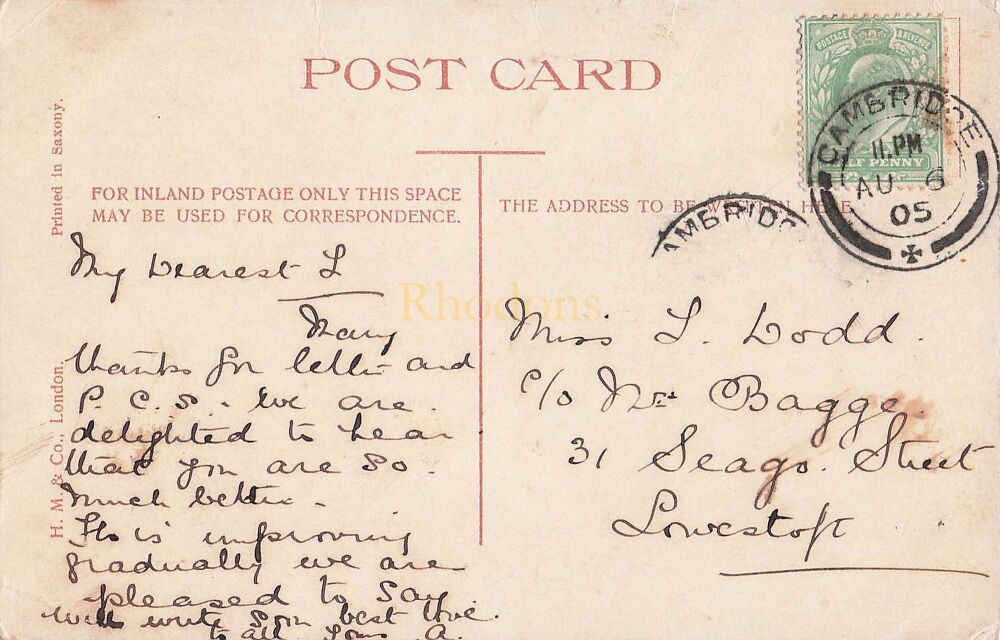 POST CARD
POSTAGE & REVENUE
HALF PENNY
CAMBRIDGE
11.PM
AU 6
05
AMBRIDG
Printed in Saxony.
H. M. & Co., London.
FOR INLAND POSTAGE ONLY THIS SPACE
MAY BE USED FOR CORRESPONDENCE.
THE ADDRESS TO BE WRITTEN HERE
Rhodons
My Dearest L
Many
thanks for letter and
P. C. s. We are
delighted to hear
that you are so
much better.
is improving
gradually we are
pleased to say
will write soon best love.
to all. Yours A.
Miss L. Dodd.
c/o Mrs Bagge.
31 Seago. Street
Lowestoft